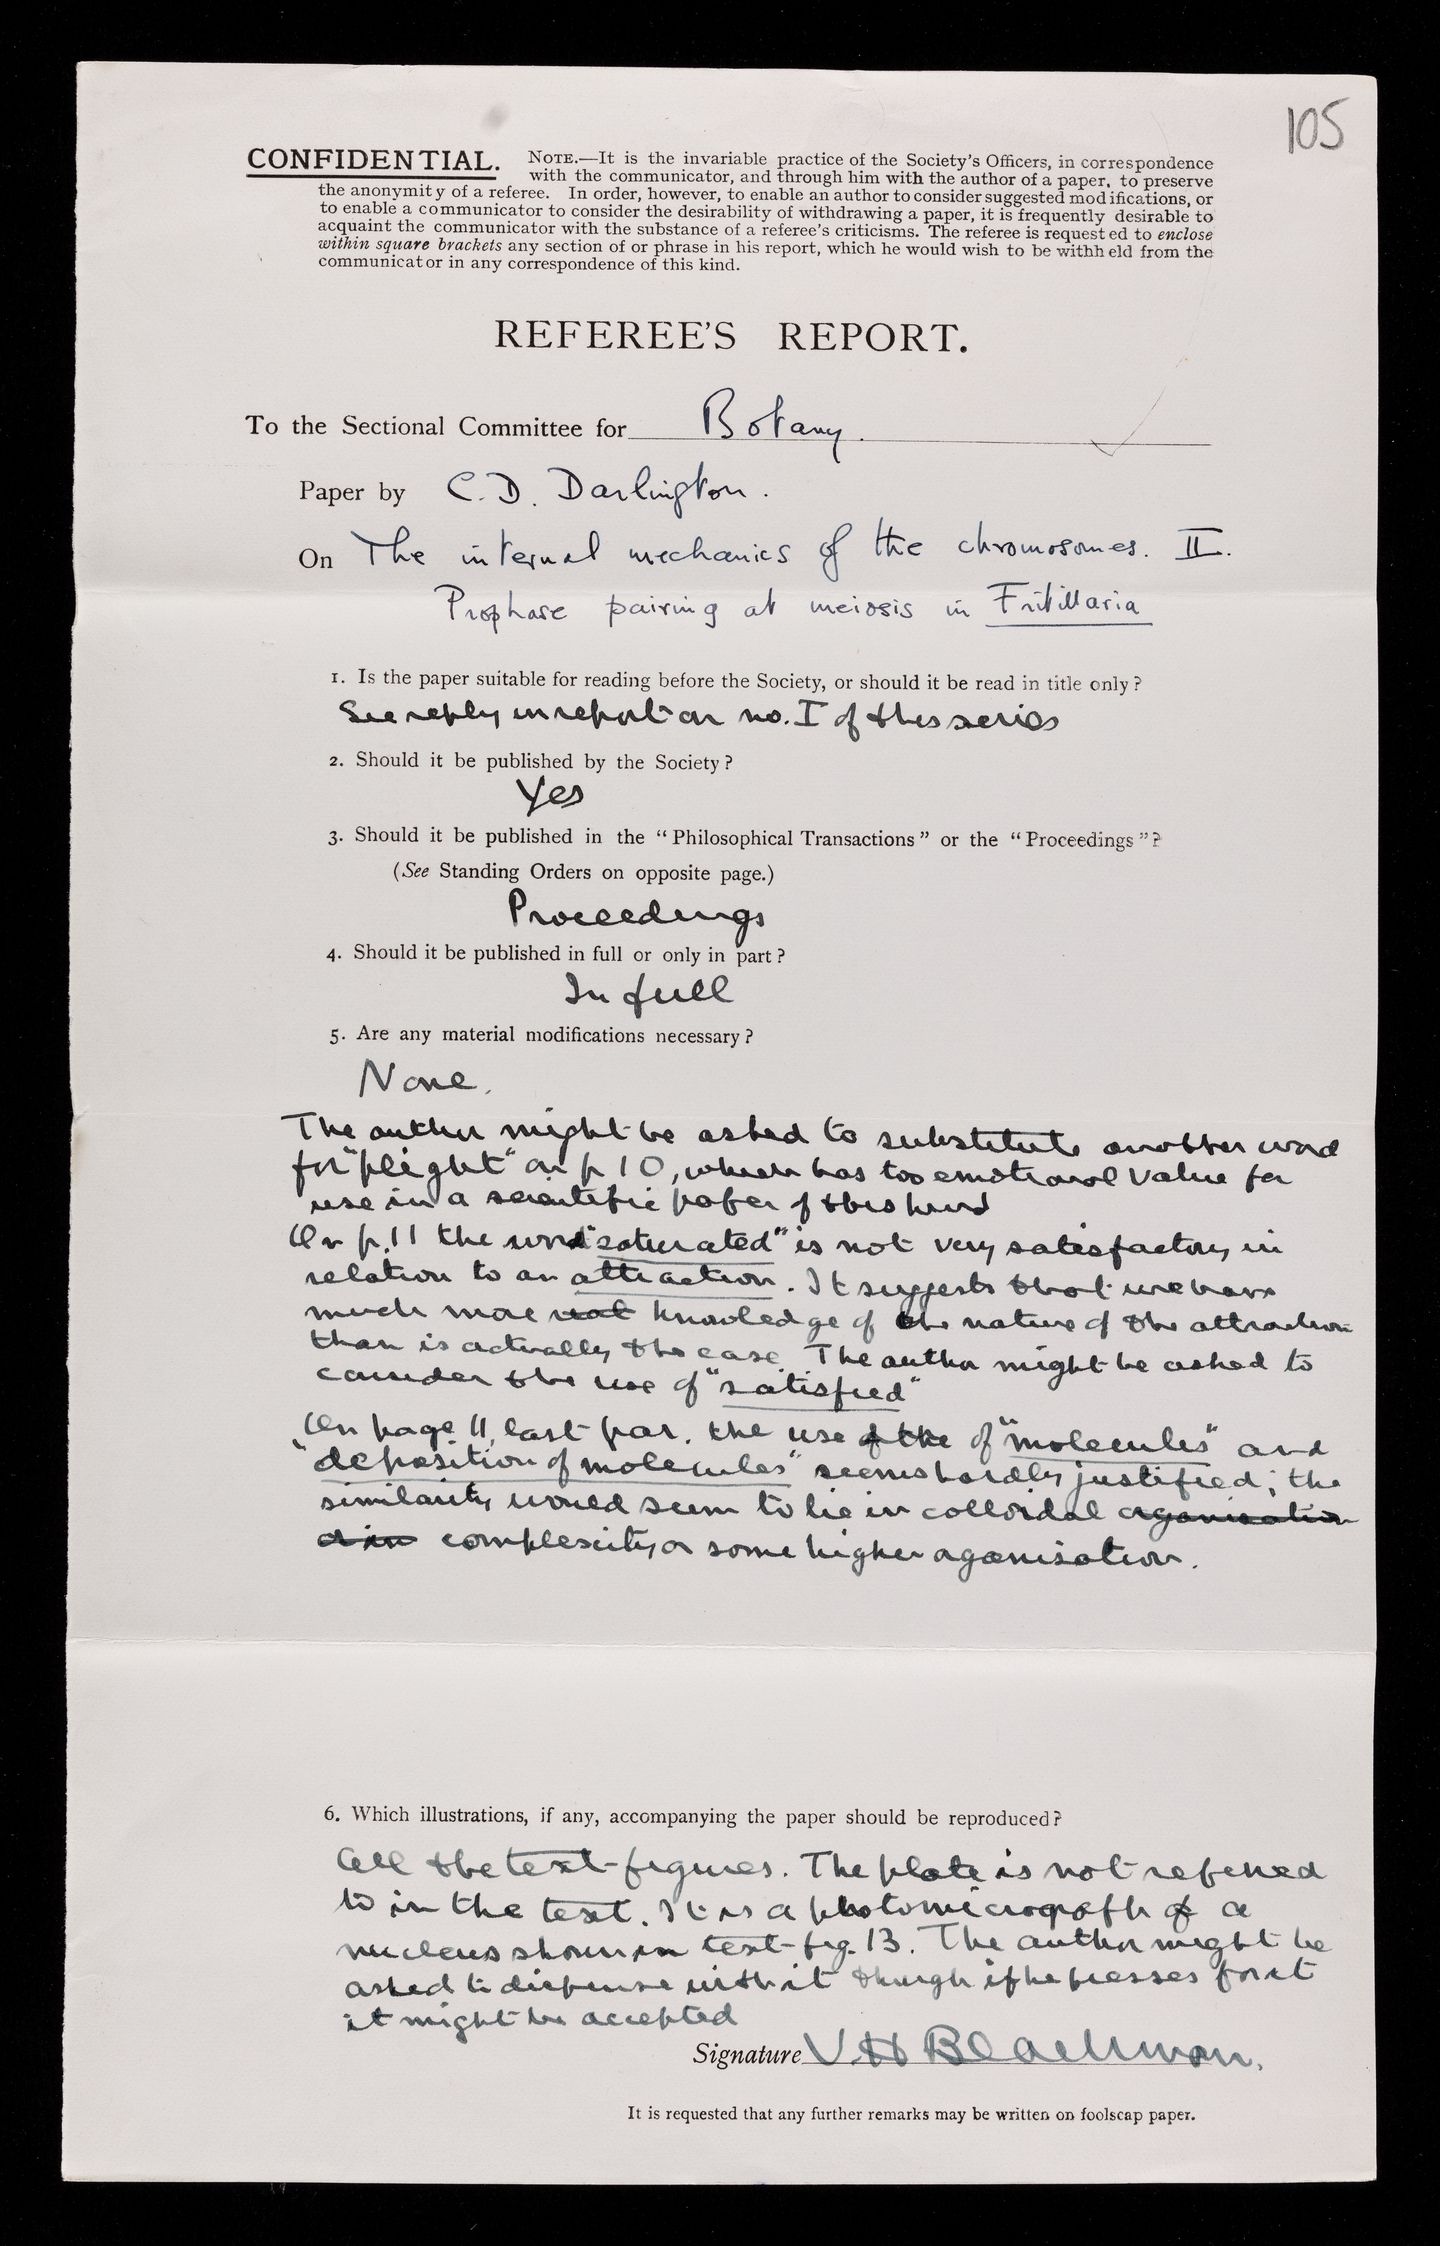 105
CONFIDENTIAL. NOTE.—It is the invariable practice of the Society's Officers, in correspondence
with the communicator, and through him with the author of a paper, to preserve
the anonymity of a referee. In order, however, to enable an author to consider suggested modifications, or
to enable a communicator to consider the desirability of withdrawing a paper, it is frequently desirable to
acquaint the communicator with the substance of a referee's criticisms. The referee is requested to enclose
within square brackets any section of or phrase in his report, which he would wish to be withheld from the
communicator in any correspondence of this kind.
REFEREE'S REPORT.
To the Sectional Committee for Botany.
Paper by C. D. Darlington.
On The internal mechanics of the chromosomes. II.
Prophase pairing at meiosis in Fritillaria
1. Is the paper suitable for reading before the Society, or should it be read in title only?
See reply in report on no. I of this series
2. Should it be published by the Society?
Yes
3. Should it be published in the "Philosophical Transactions" or the "Proceedings"?
(See Standing Orders on opposite page.)
Proceedings
4. Should it be published in full or only in part?
In full
5. Are any material modifications necessary?
None.
The author might be asked to substitute another word
for "plight" on p 10, which has too emotional value for
use in a scientific paper of this kind
On p.11 the word "saturated" is not very satisfactory in
relation to an attraction. It suggests that we have
much more knowledge of the nature of the attraction
than is actually the case. The author might be asked to
consider the use of "satisfied"
On page 11, last par. the use of the of "molecules" and
"deposition of molecules" seems hardly justified; the
similarity would seem to lie in colloidal organisation
or in complexity or some higher organisation.
6. Which illustrations, if any, accompanying the paper should be reproduced?
All the text-figures. The plate is not referred
to in the text. It is a photomicrograph of a
nucleus shown in text-fig. 13. The author might be
asked to dispense with it though if he presses for it
it might be accepted
Signature V. H Blackman.
It is requested that any further remarks may be written on foolscap paper.